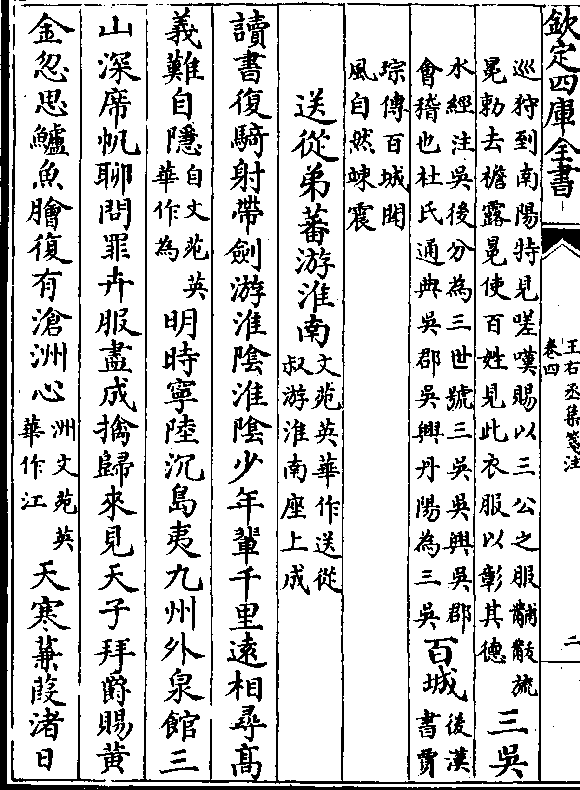 欽定四庫全書
王右丞集箋注
卷四
二
巡狩到南陽特見嗟嘆賜以三公之服黼黻旒
冕勅去襜露冕使百姓見此衣服以彰其德
三吳
水經注吳後分為三世號三吳吳興吳郡
會稽也杜氏通典吳郡吳興丹陽為三吳
百城
後漢
書賈
琮傳百城聞
風自然竦震
送從弟蕃游淮南
文苑英華作送從
叔游淮南座上成
讀書復騎射帶劍游淮陰淮陰少年輩千里遠相尋髙
義難自隱
自文苑英
華作為
明時寧陸沉島夷九州外泉館三
山深席帆聊問罪卉服盡成擒歸來見天子拜爵賜黃
金忽思鱸魚膾復有滄洲心
洲文苑英
華作江
天寒蒹葭渚日